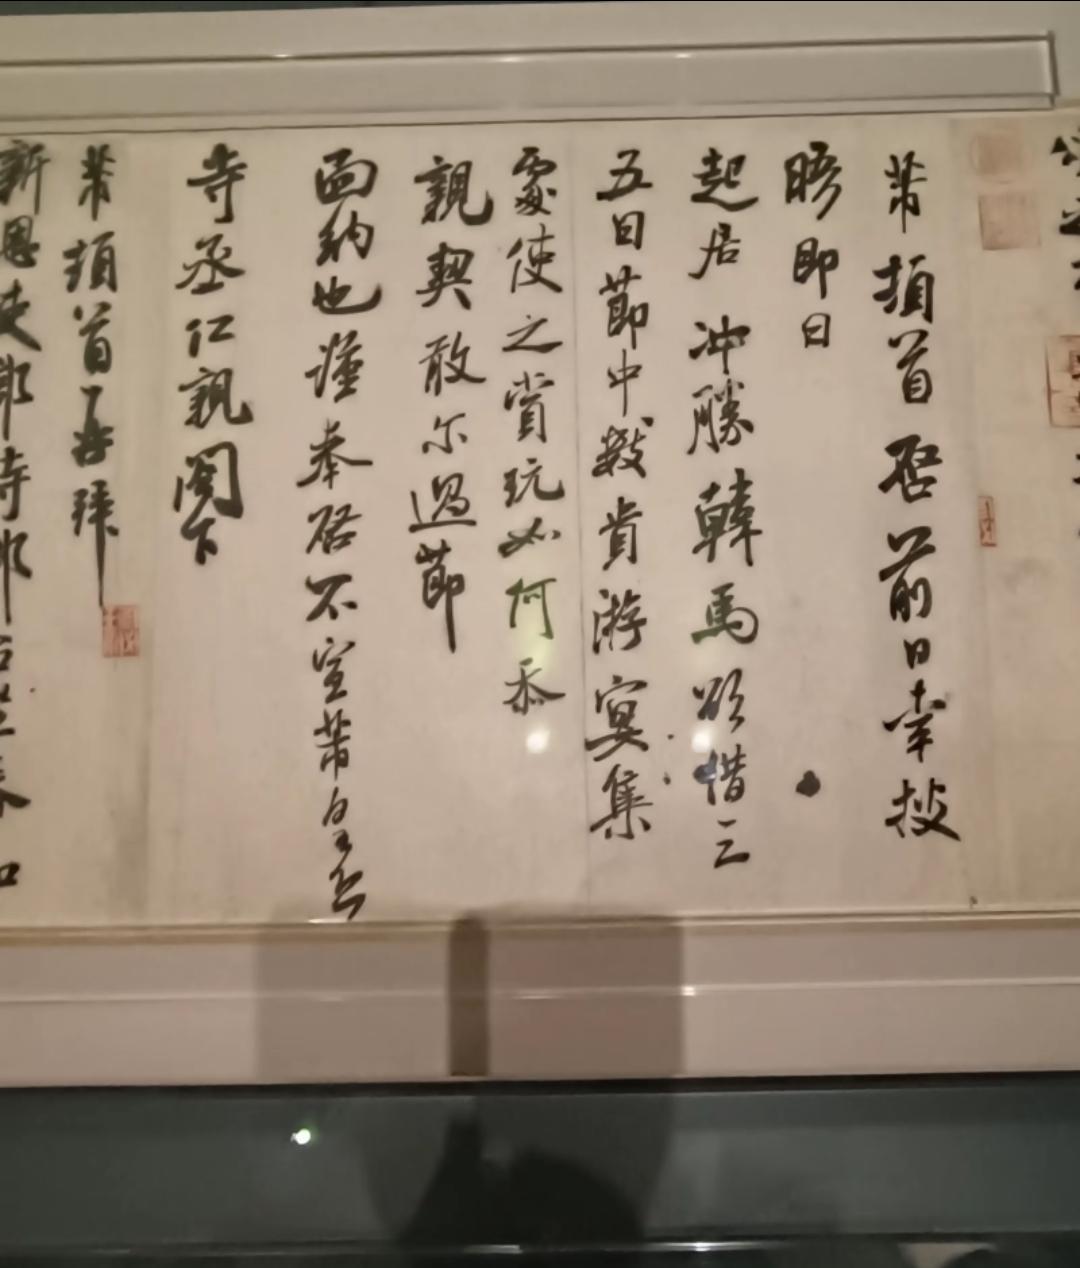 芾頓首啓前日幸披
晤即日
起居冲勝韓馬欲借三
五日節中數貴游宴集
處使之賞玩如何忝
親契敢尔過節
面納也謹奉啓不宣芾皇恐
寺丞仁親閣下
芾頓首再拜
新恩使郎寺